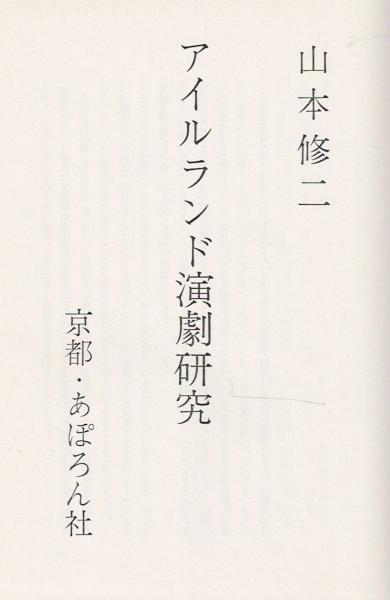 山本修二
アイルランド演劇研究
京都・あぽろん社